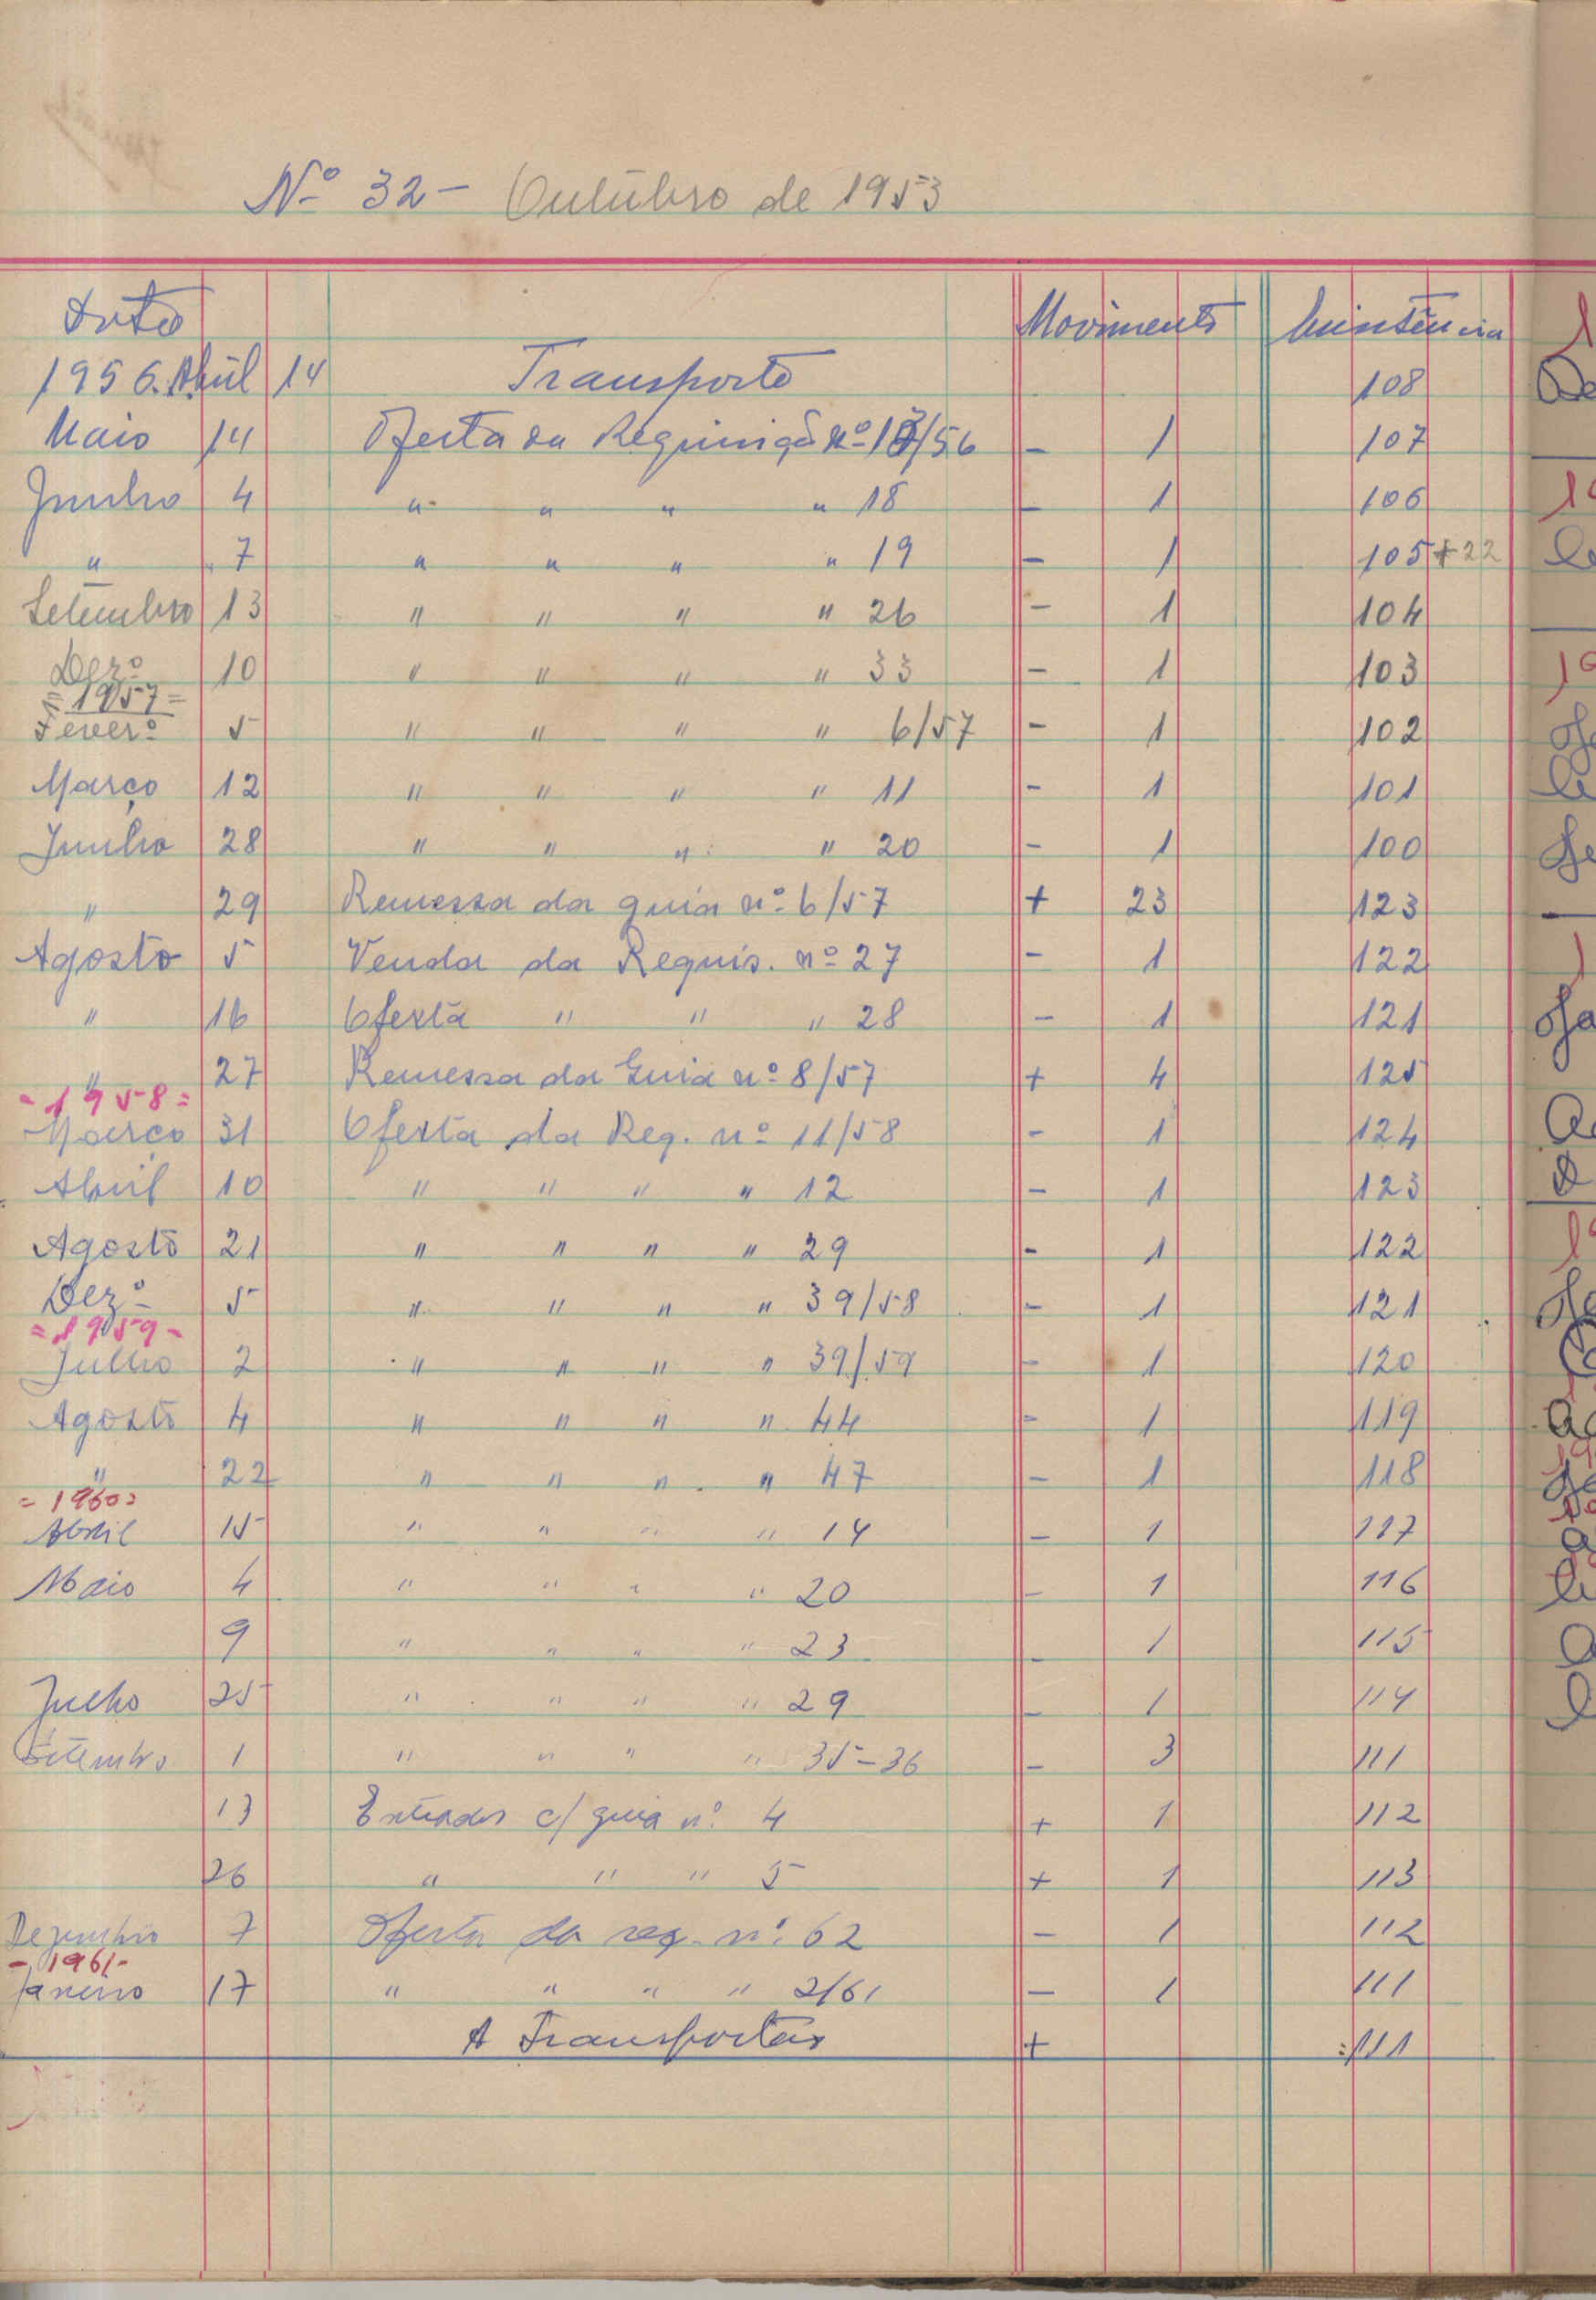 Nº 32 - Outubro de 1953
Data Movimento Existência
1956. Abril 14 Transporte 108
Maio 14 Oferta da Requisição nº 13/56 - 1 107
Junho 4 " " " " 18 - 1 106
" 7 " " " " 19 - 1 105 + 22
Setembro 13 " " " " 26 - 1 104
Dezº 10 " " " " 33 - 1 103
= 1957 =
Feverº 5 " " " " 6/57 - 1 102
Março 12 " " " " 11 - 1 101
Junho 28 " " " " 20 - 1 100
" 29 Remessa da guia nº 6/57 + 23 123
Agosto 5 Venda da Requis. nº 27 - 1 122
" 16 Oferta " " " 28 - 1 121
" 27 Remessa da Guia nº 8/57 + 4 125
- 1958 =
Março 31 Oferta da Req. nº 11/58 - 1 124
Abril 10 " " " " 12 - 1 123
Agosto 21 " " " " 29 - 1 122
Dezº 5 " " " " 39/58 - 1 121
= 1959 -
Julho 2 " " " " 39/59 - 1 120
Agosto 4 " " " " 44 - 1 119
" 22 " " " " 47 - 1 118
= 1960 =
Abril 15 " " " " 14 - 1 117
Maio 4 " " " " 20 - 1 116
9 " " " " 23 - 1 115
Julho 25 " " " " 29 - 1 114
Setembro 1 " " " " 35-36 - 3 111
13 Entradas c/ guia nº 4 + 1 112
26 " " " 5 + 1 113
Dezembro 7 Oferta da req. nº 62 - 1 112
- 1961 -
Janeiro 17 " " " " 2/61 - 1 111
A Transportar + :111